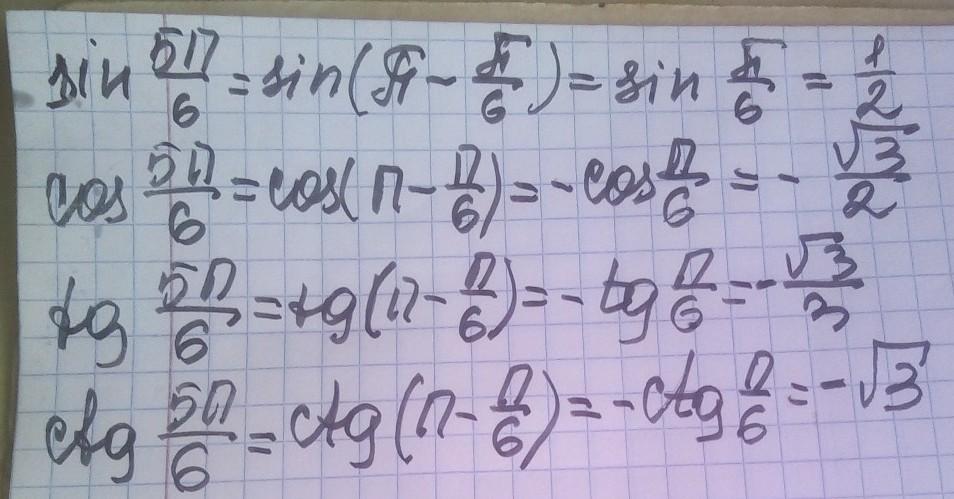 sin 5П/6 = sin(π - π/6) = sin π/6 = 1/2
cos 5П/6 = cos(П - П/6) = - cos П/6 = - √3/2
tg 5П/6 = tg(П - П/6) = - tg П/6 = - √3/3
ctg 5П/6 = ctg(П - П/6) = - ctg П/6 = - √3